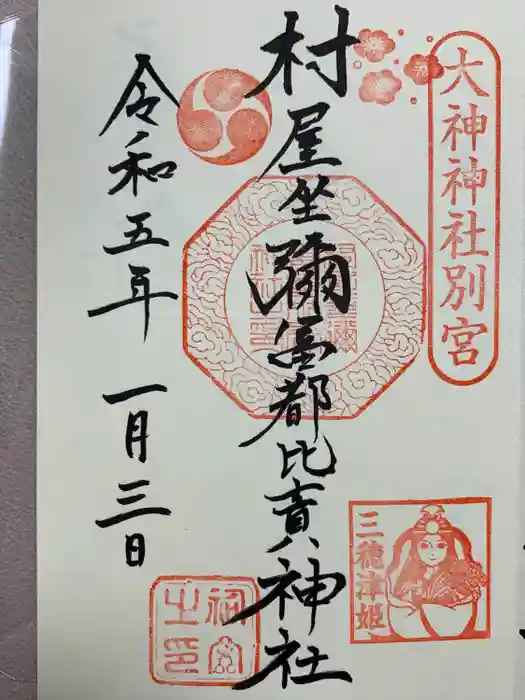 大神神社別宮
村屋坐彌冨都比賣神社
令和五年一月三日
三穂津姫
祠官之印